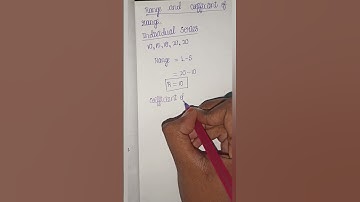 Range and coefficient of
Range.
Individual Series
10, 10, 10, 20, 20
Range = L-S
= 20-10
R = 10
coefficient of